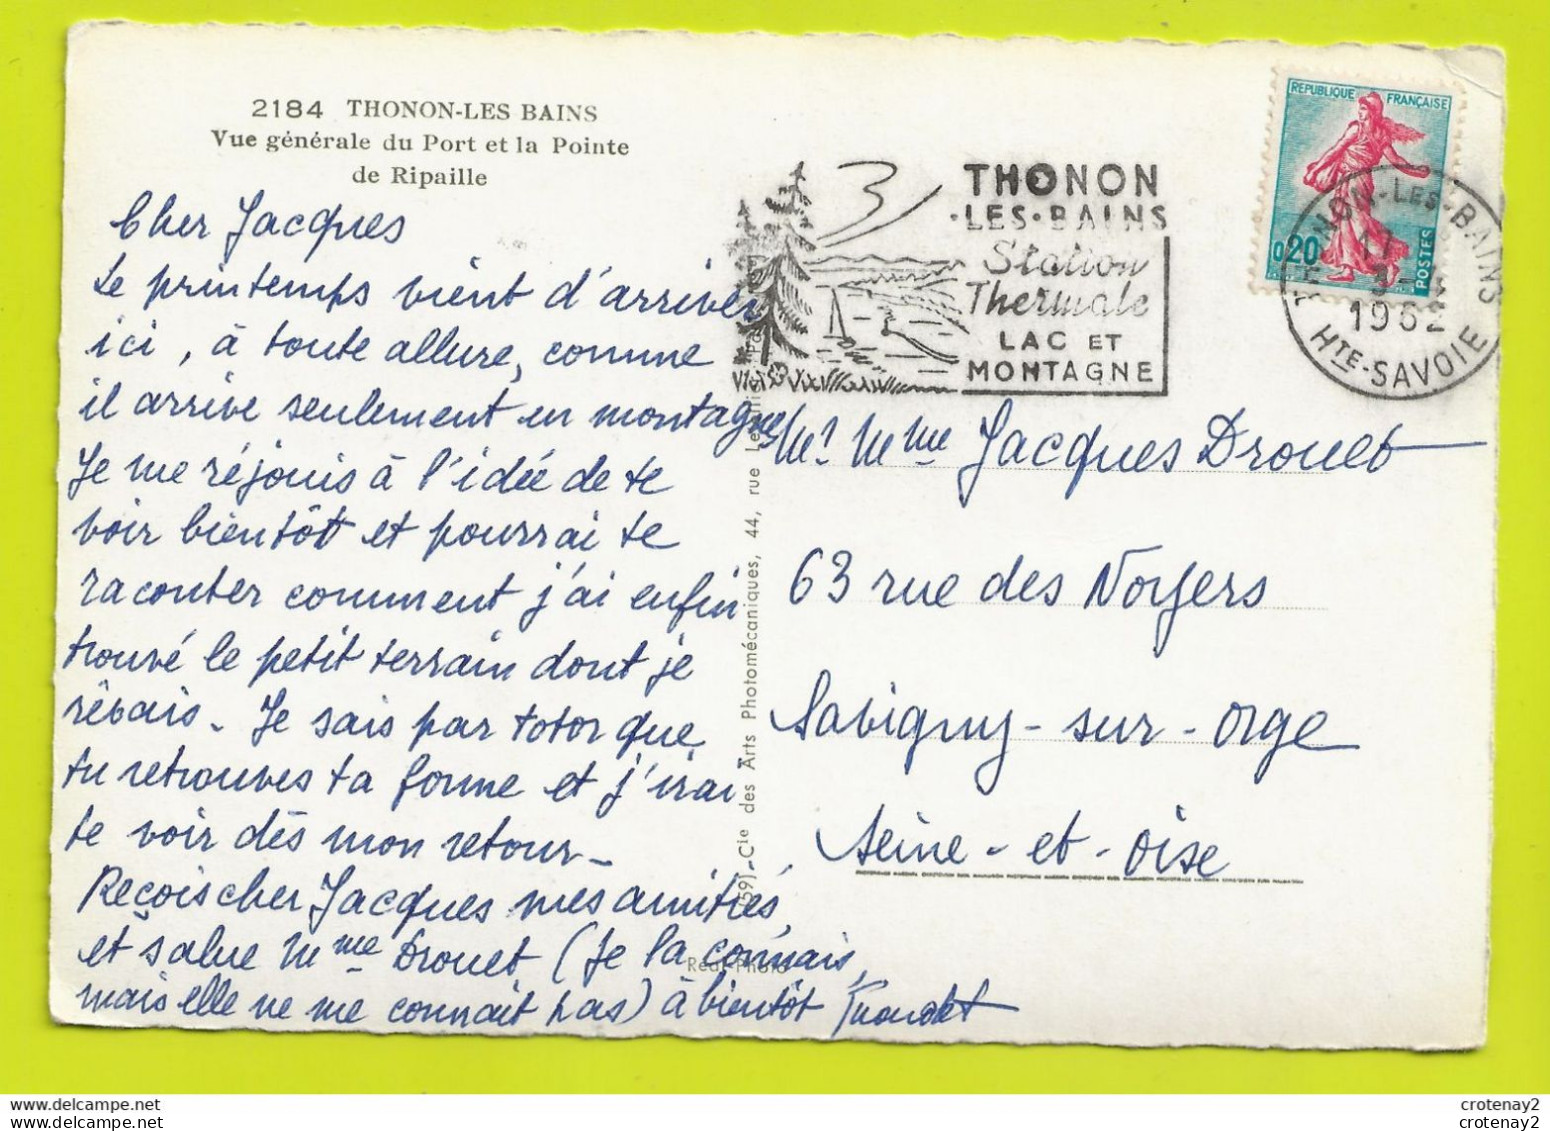 2184 THONON-LES BAINS
Vue générale du Port et la Pointe
de Ripaille
Cher Jacques
Le printemps vient d'arriver
ici, à toute allure, comme
il arrive seulement en montagne
Je me réjouis à l'idée de te
voir bientôt et pourrai te
raconter comment j'ai enfin
trouvé le petit terrain dont je
rêvais. Je sais par totor que
tu retrouves ta forme et j'irai
te voir dès mon retour -
Reçois cher Jacques mes amitiés,
et salue Mme Drouet (Je la connais,
mais elle ne me connait pas) à bientôt
Cie des Arts Photomécaniques, 44, rue
THONON
·LES·BAINS
Station
Thermale
LAC ET
MONTAGNE
REPUBLIQUE FRANÇAISE
0,20
POSTES
THONON-LES-BAINS
17
1962
HTE-SAVOIE
Mr Mme Jacques Drouet
63 rue des Noyers
Savigny-sur-Orge
Seine-et-Oise
crotenay2
crotenay2
crotenay2
crotenay2